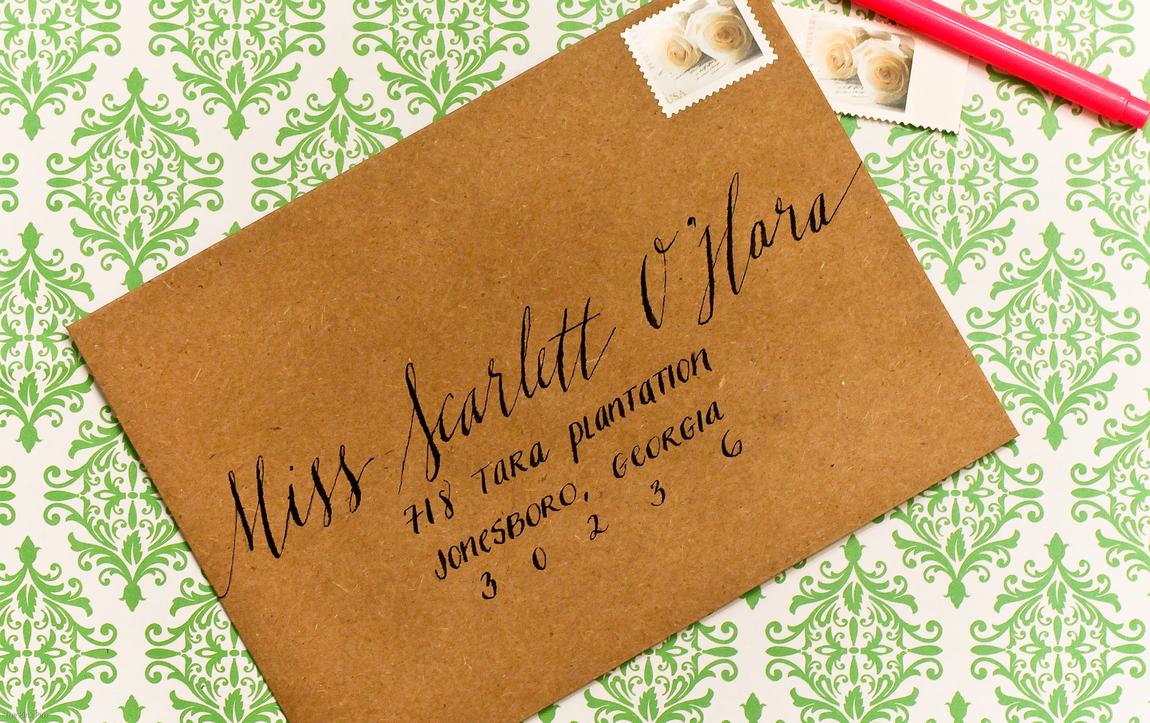 USA
Miss Scarlett O'Hara
718 Tara Plantation
Jonesboro, Georgia
3 0 2 3 6